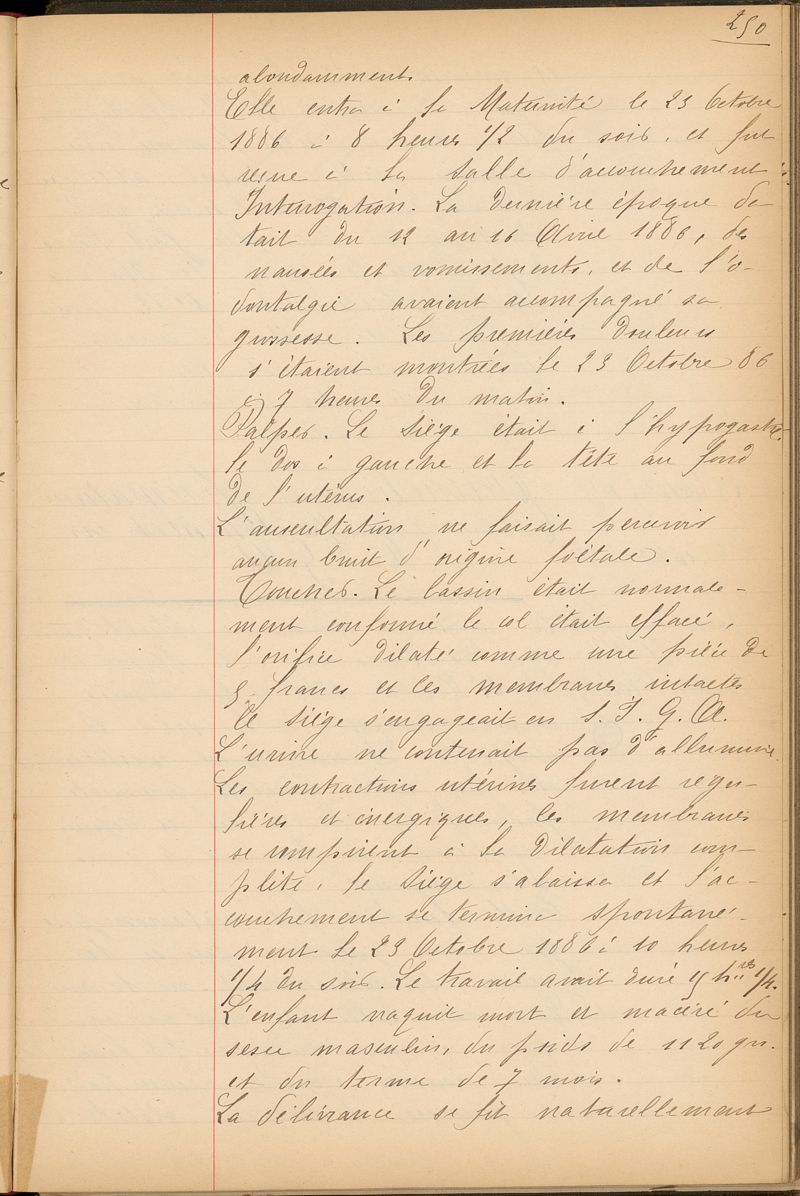 250
abondamment.
Elle entra à la Maternité le 23 Octobre
1886 à 8 heures 1/2 du soir, et fut
reçue à la Salle d'accouchement :
Interrogation. La dernière époque da-
tait du 12 au 16 Avril 1886, des
nausées et vomissements, et de l'o-
dontalgie avaient accompagné sa
grossesse. Les premières douleurs
s'étaient montrées le 23 Octobre 86
à 7 heures du matin.
Palper. Le Siège était à l'hypogastre,
le dos à gauche et la tête au fond
de l'utérus.
L'auscultation ne faisait percevoir
aucun bruit d'origine foetale.
Toucher. Le bassin était normale-
ment conformé le col était effacé,
l'orifice dilaté comme une pièce de
5 francs et les membranes intactes
le siège s'engageait en S. I. G. A.
L'urine ne contenait pas d'albumine.
Les contractions utérines furent régu-
lières et énergiques, les membranes
se rompirent à la dilatation com-
plète, le Siège s'abaissa et l'ac-
couchement se termina spontané-
ment le 23 Octobre 1886 à 10 heures
1/4 du soir. Le travail avait duré 15 hres 1/4.
L'enfant naquit mort et macéré du
sexe masculin, du poids de 1120 grs.
et du terme de 7 mois.
La délivrance se fit naturellement